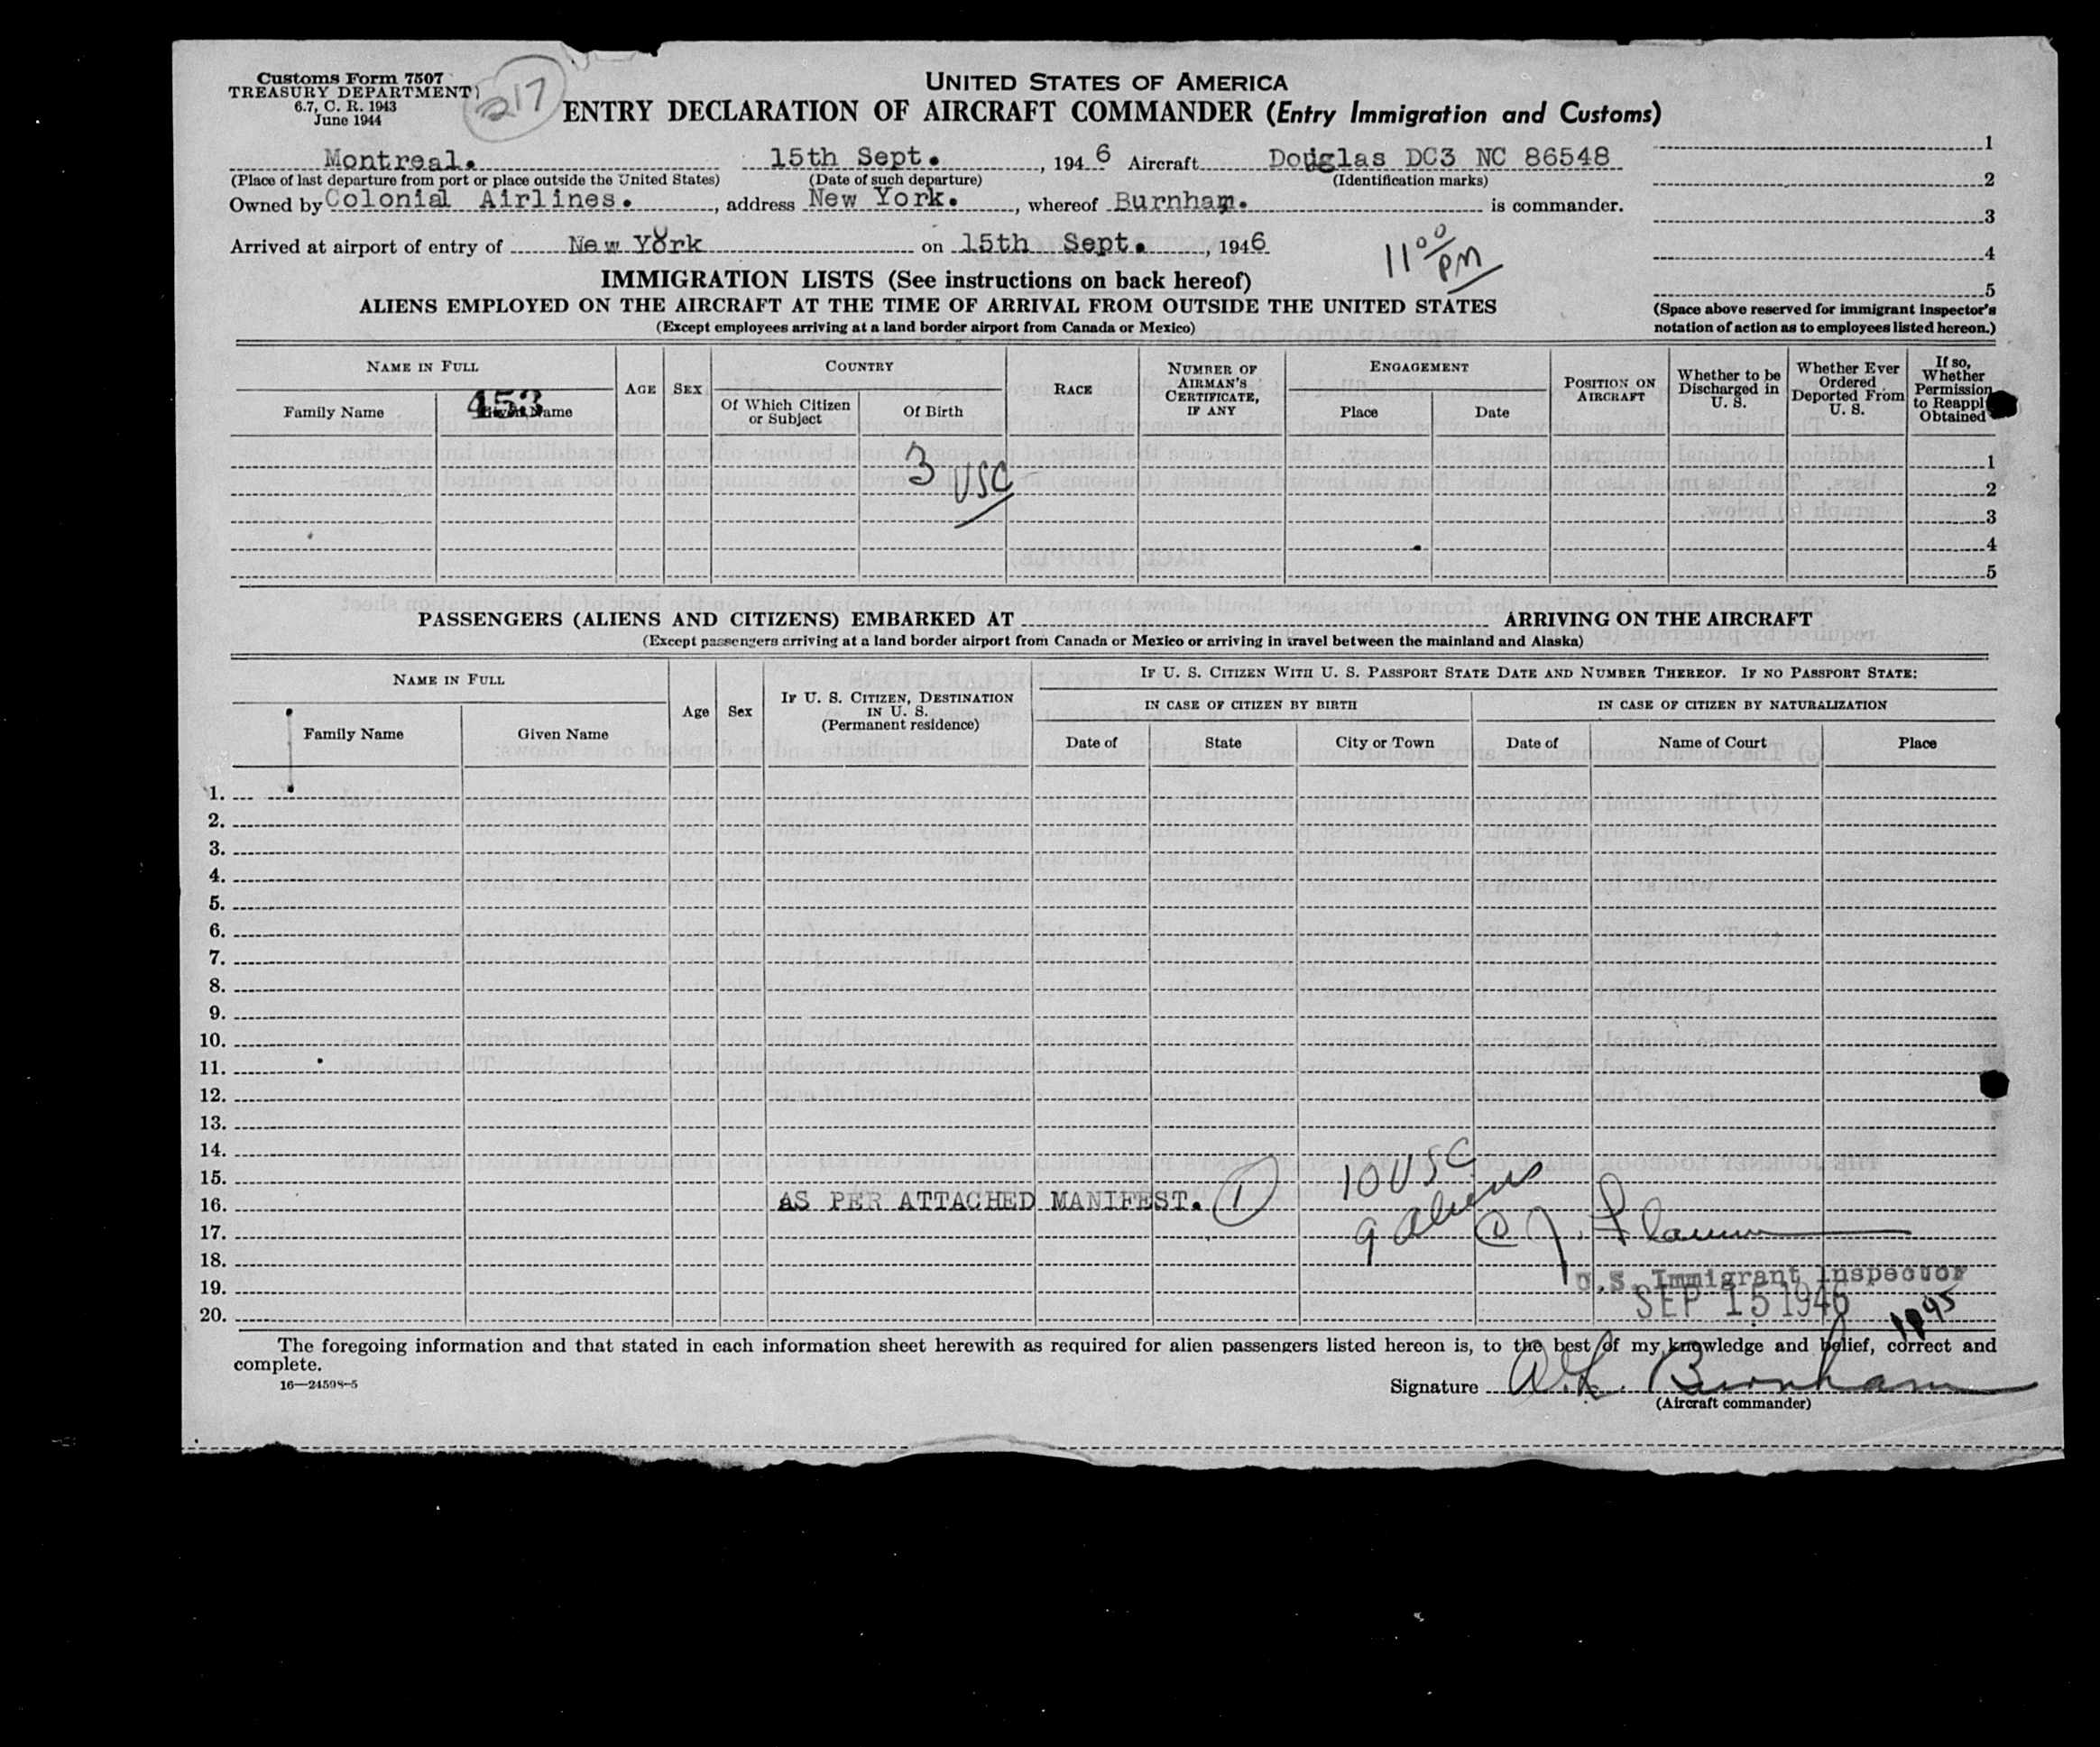 Customs Form 7507
TREASURY DEPARTMENT
6.7, C. R. 1943
June 1944
217
UNITED STATES OF AMERICA
ENTRY DECLARATION OF AIRCRAFT COMMANDER (Entry Immigration and Customs)
Montreal. 15th Sept. , 1946 Aircraft Douglas DC3 NC 86548
(Place of last departure from port or place outside the United States) (Date of such departure) (Identification marks)
Owned by Colonial Airlines. , address New York. , whereof Burnham. is commander.
Arrived at airport of entry of New York on 15th Sept. , 1946
11 00 PM
1
2
3
4
5
(Space above reserved for immigrant inspector's
notation of action as to employees listed hereon.)
IMMIGRATION LISTS (See instructions on back hereof)
ALIENS EMPLOYED ON THE AIRCRAFT AT THE TIME OF ARRIVAL FROM OUTSIDE THE UNITED STATES
(Except employees arriving at a land border airport from Canada or Mexico)
NAME IN FULL
Family Name
Given Name
453
AGE
SEX
COUNTRY
Of Which Citizen
or Subject
Of Birth
RACE
NUMBER OF
AIRMAN'S
CERTIFICATE,
IF ANY
ENGAGEMENT
Place
Date
POSITION ON
AIRCRAFT
Whether to be
Discharged in
U. S.
Whether Ever
Ordered
Deported From
U. S.
If so,
Whether
Permission
to Reapply
Obtained
3 USC
1
2
3
4
5
PASSENGERS (ALIENS AND CITIZENS) EMBARKED AT ARRIVING ON THE AIRCRAFT
(Except passengers arriving at a land border airport from Canada or Mexico or arriving in travel between the mainland and Alaska)
NAME IN FULL
Family Name
Given Name
Age
Sex
IF U. S. CITIZEN, DESTINATION
IN U. S.
(Permanent residence)
IF U. S. CITIZEN WITH U. S. PASSPORT STATE DATE AND NUMBER THEREOF. IF NO PASSPORT STATE:
IN CASE OF CITIZEN BY BIRTH
Date of
State
City or Town
IN CASE OF CITIZEN BY NATURALIZATION
Date of
Name of Court
Place
1.
2.
3.
4.
5.
6.
7.
8.
9.
10.
11.
12.
13.
14.
15.
16.
17.
18.
19.
20.
AS PER ATTACHED MANIFEST. 1
10 USC
9 Aliens
U.S. Immigrant Inspector
SEP 15 1946
The foregoing information and that stated in each information sheet herewith as required for alien passengers listed hereon is, to the best of my knowledge and belief, correct and
complete.
16—24598-5
Signature Burnham
(Aircraft commander)